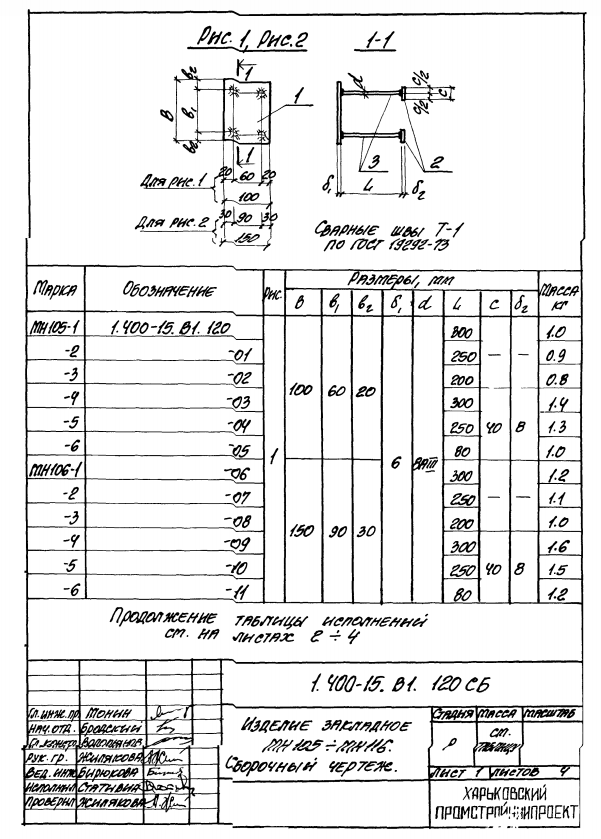 Рис. 1, Рис. 2
1-1
1
1
1
в2
в1
в2
В
20 60 20
Для рис. 1
100
30 90 30
Для рис. 2
150
d
с/2
с/2
с
3
2
δ1
L
δ2
Сварные швы Т-1
по ГОСТ 19292-73
Марка Обозначение Рис. Размеры, мм Масса кг
В в1 в2 δ1 d L с δ2
МН105-1 1.400-15.В1.120 300 1.0
-2 -01 250 — — 0.9
-3 -02 200 0.8
100 60 20
-4 -03 300 1.4
-5 -04 250 40 8 1.3
-6 -05 80 1.0
1 6 8АIII
МН106-1 -06 300 1.2
-2 -07 250 — — 1.1
-3 -08 200 1.0
150 90 30
-4 -09 300 1.6
-5 -10 250 40 8 1.5
-6 -11 80 1.2
Продолжение таблицы исполнений
см. на листах 2 ÷ 4
1.400-15.В1.120 СБ
Гл. инж. пр. Монин
Нач. отд. Бродский
Гл. констр.
Рук. гр. Жилякова
Вед. инж. Бирюкова
Исполнил Стативка
Проверил Жилякова
Изделие закладное
МН105 ÷ МН116.
Сборочный чертеж.
Стадия Масса Масштаб
Р см. таблицу
Лист 1 Листов 4
ХАРЬКОВСКИЙ
ПРОМСТРОЙНИИПРОЕКТ